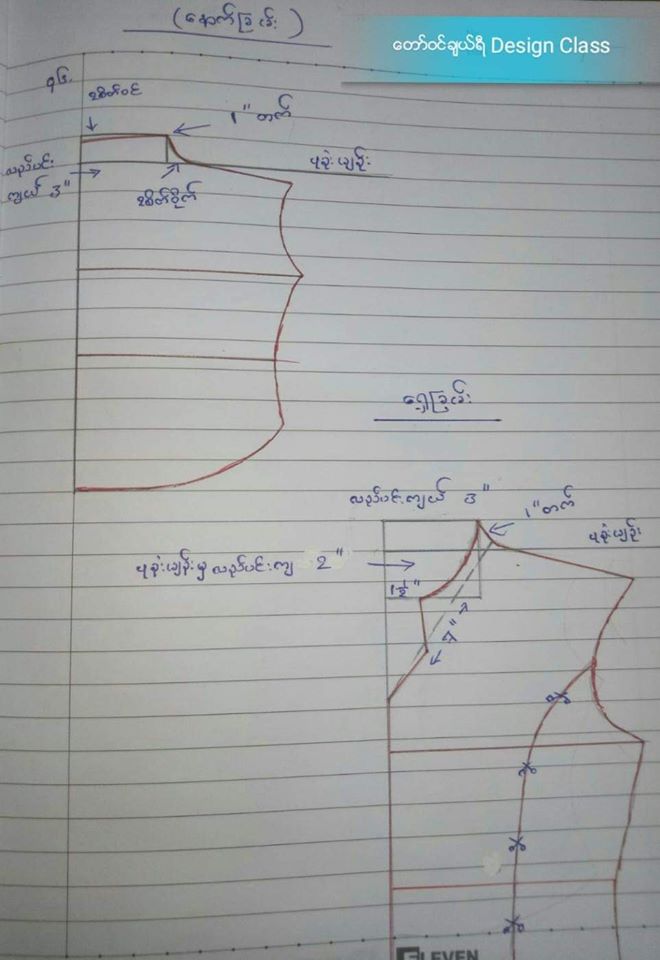 (နောက်ခြမ်း)
တော်ဝင်ချယ်ရီ Design Class
၅၆.
အိတ်ဝင်
1" တက်
ပုခုံးမျဉ်း
လည်ပင်း
ကျယ် 3"
အိတ်ဝိုက်
ရှေ့ခြမ်း
လည်ပင်းကျယ် 3"
1" တက်
ပုခုံးမျဉ်း
ပုခုံးမျဉ်းမှ လည်ပင်းကျ 2"
1½"
4"
ELEVEN